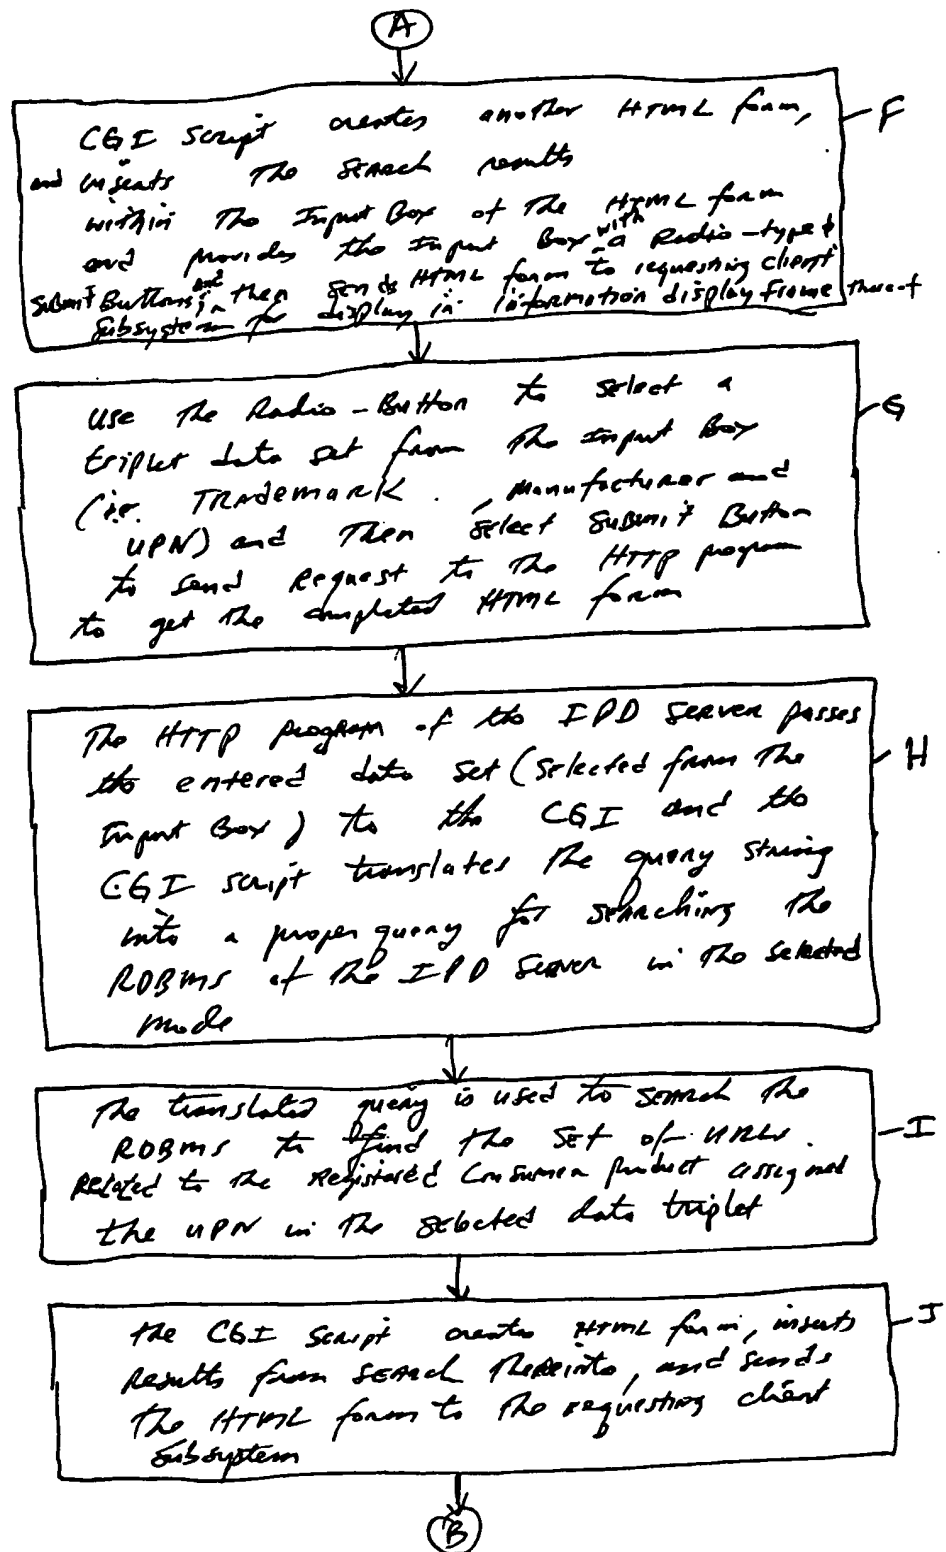 A
CGI Script creates another HTML form, F
and inserts the search results
within the Input Box of the HTML form
and provides the Input Box with a Radio-type &
Submit Buttons; and then sends HTML form to requesting client
Subsystem for display in information display frame thereof
Use the Radio-Button to select a G
triplet data set from the Input Box
(i.e. Trademark, Manufacturer and
UPN) and then select Submit Button
to send Request to the HTTP program
to get the completed HTML form
The HTTP program of the IPD Server passes
the entered data set (selected from the H
Input Box) to the CGI and the
CGI script translates the query string
into a proper query for searching the
RDBMS of the IPD Server in the selected
mode
The translated query is used to search the
RDBMS to find the set of URLs. I
Related to the Registered Consumer product assigned
the UPN in the selected data triplet
the CGI Script creates HTML form, inserts J
Results from search thereinto, and sends
the HTML form to the requesting client
Subsystem
B